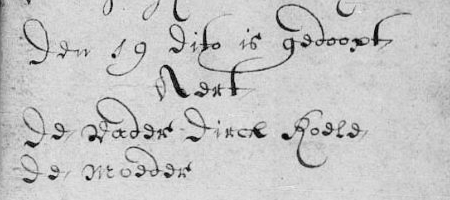 Den 19 dito is gedoopt
Aert
De Vader Dirck Roele
De Moeder